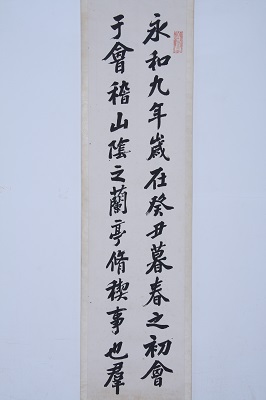 永和九年歲在癸丑暮春之初會
于會稽山陰之蘭亭脩稧事也羣